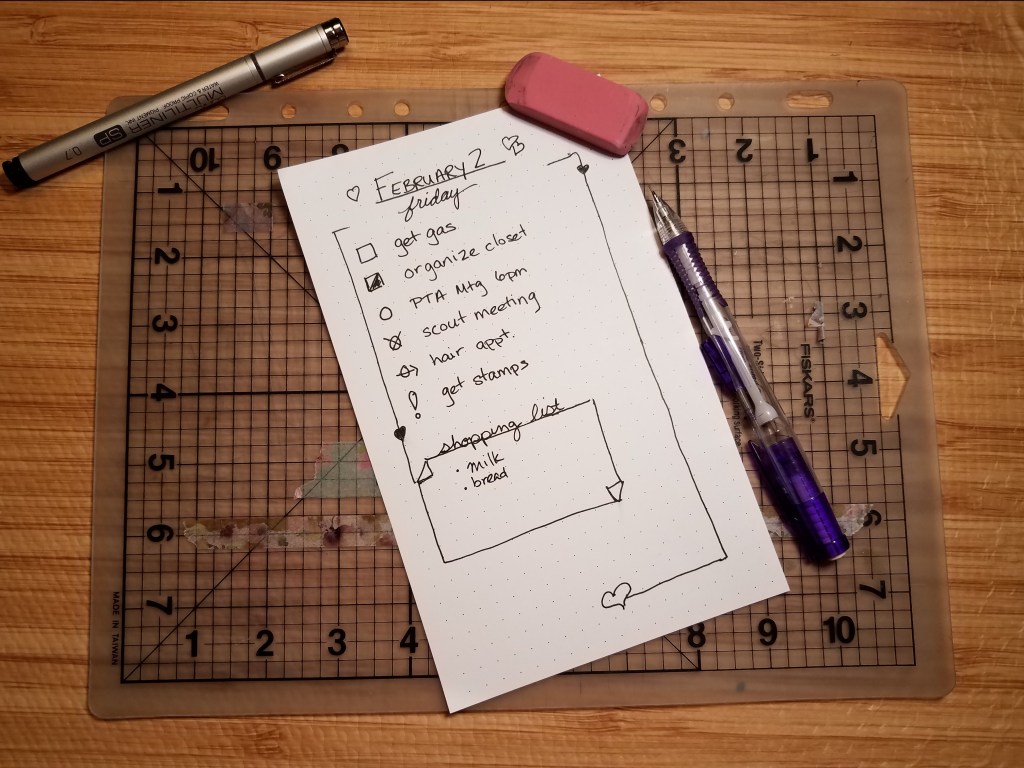 FEBRUARY 2
friday
get gas
organize closet
PTA Mtg 6pm
scout meeting
hair appt.
! get stamps
shopping list
• milk
• bread
MULTILINER SP 0.7
WATER & COPIC PROOF
PIGMENT INK
10 9 8 3 2 1
1 1
2 2
3 3
4 4
5 5
6 6
7 7
1 2 3 4 8 9 10
FISKARS
MADE IN TAIWAN